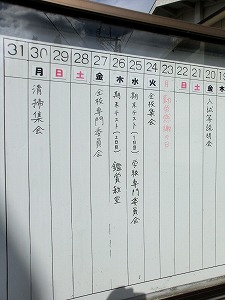 31 30 29 28 27 26 25 24 23 22 21 20 19
月 日 土 金 木 水 火 月 日 土 金 木
入試等説明会
勤労感謝の日
全校集会
期末テスト(1日目) 学校専門委員会
期末テスト(2日目) 鑑賞教室
全校専門委員会
清掃集会